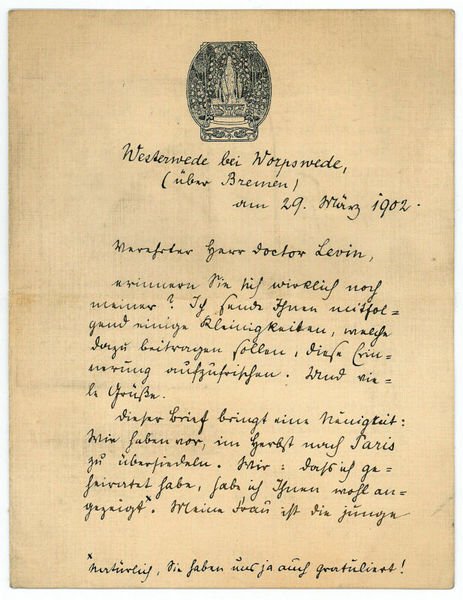 Westerwede bei Worpswede,
(über Bremen)
am 29. März 1902.
Verehrter Herr Doctor Levin,
erinnern Sie sich wirklich noch
meiner? Ich sende Ihnen mitfol-
gend einige Kleinigkeiten, welche
dazu beitragen sollen, diese Erin-
nerung aufzufrischen. Und vie-
le Grüße.
Dieser Brief bringt eine Neuigkeit:
Wir haben vor, im Herbst nach Paris
zu übersiedeln. Wir: dass ich ge-
heiratet habe, habe ich Ihnen wohl an-
gezeigt*. Meine Frau ist die junge
*Natürlich, Sie haben uns ja auch gratuliert!